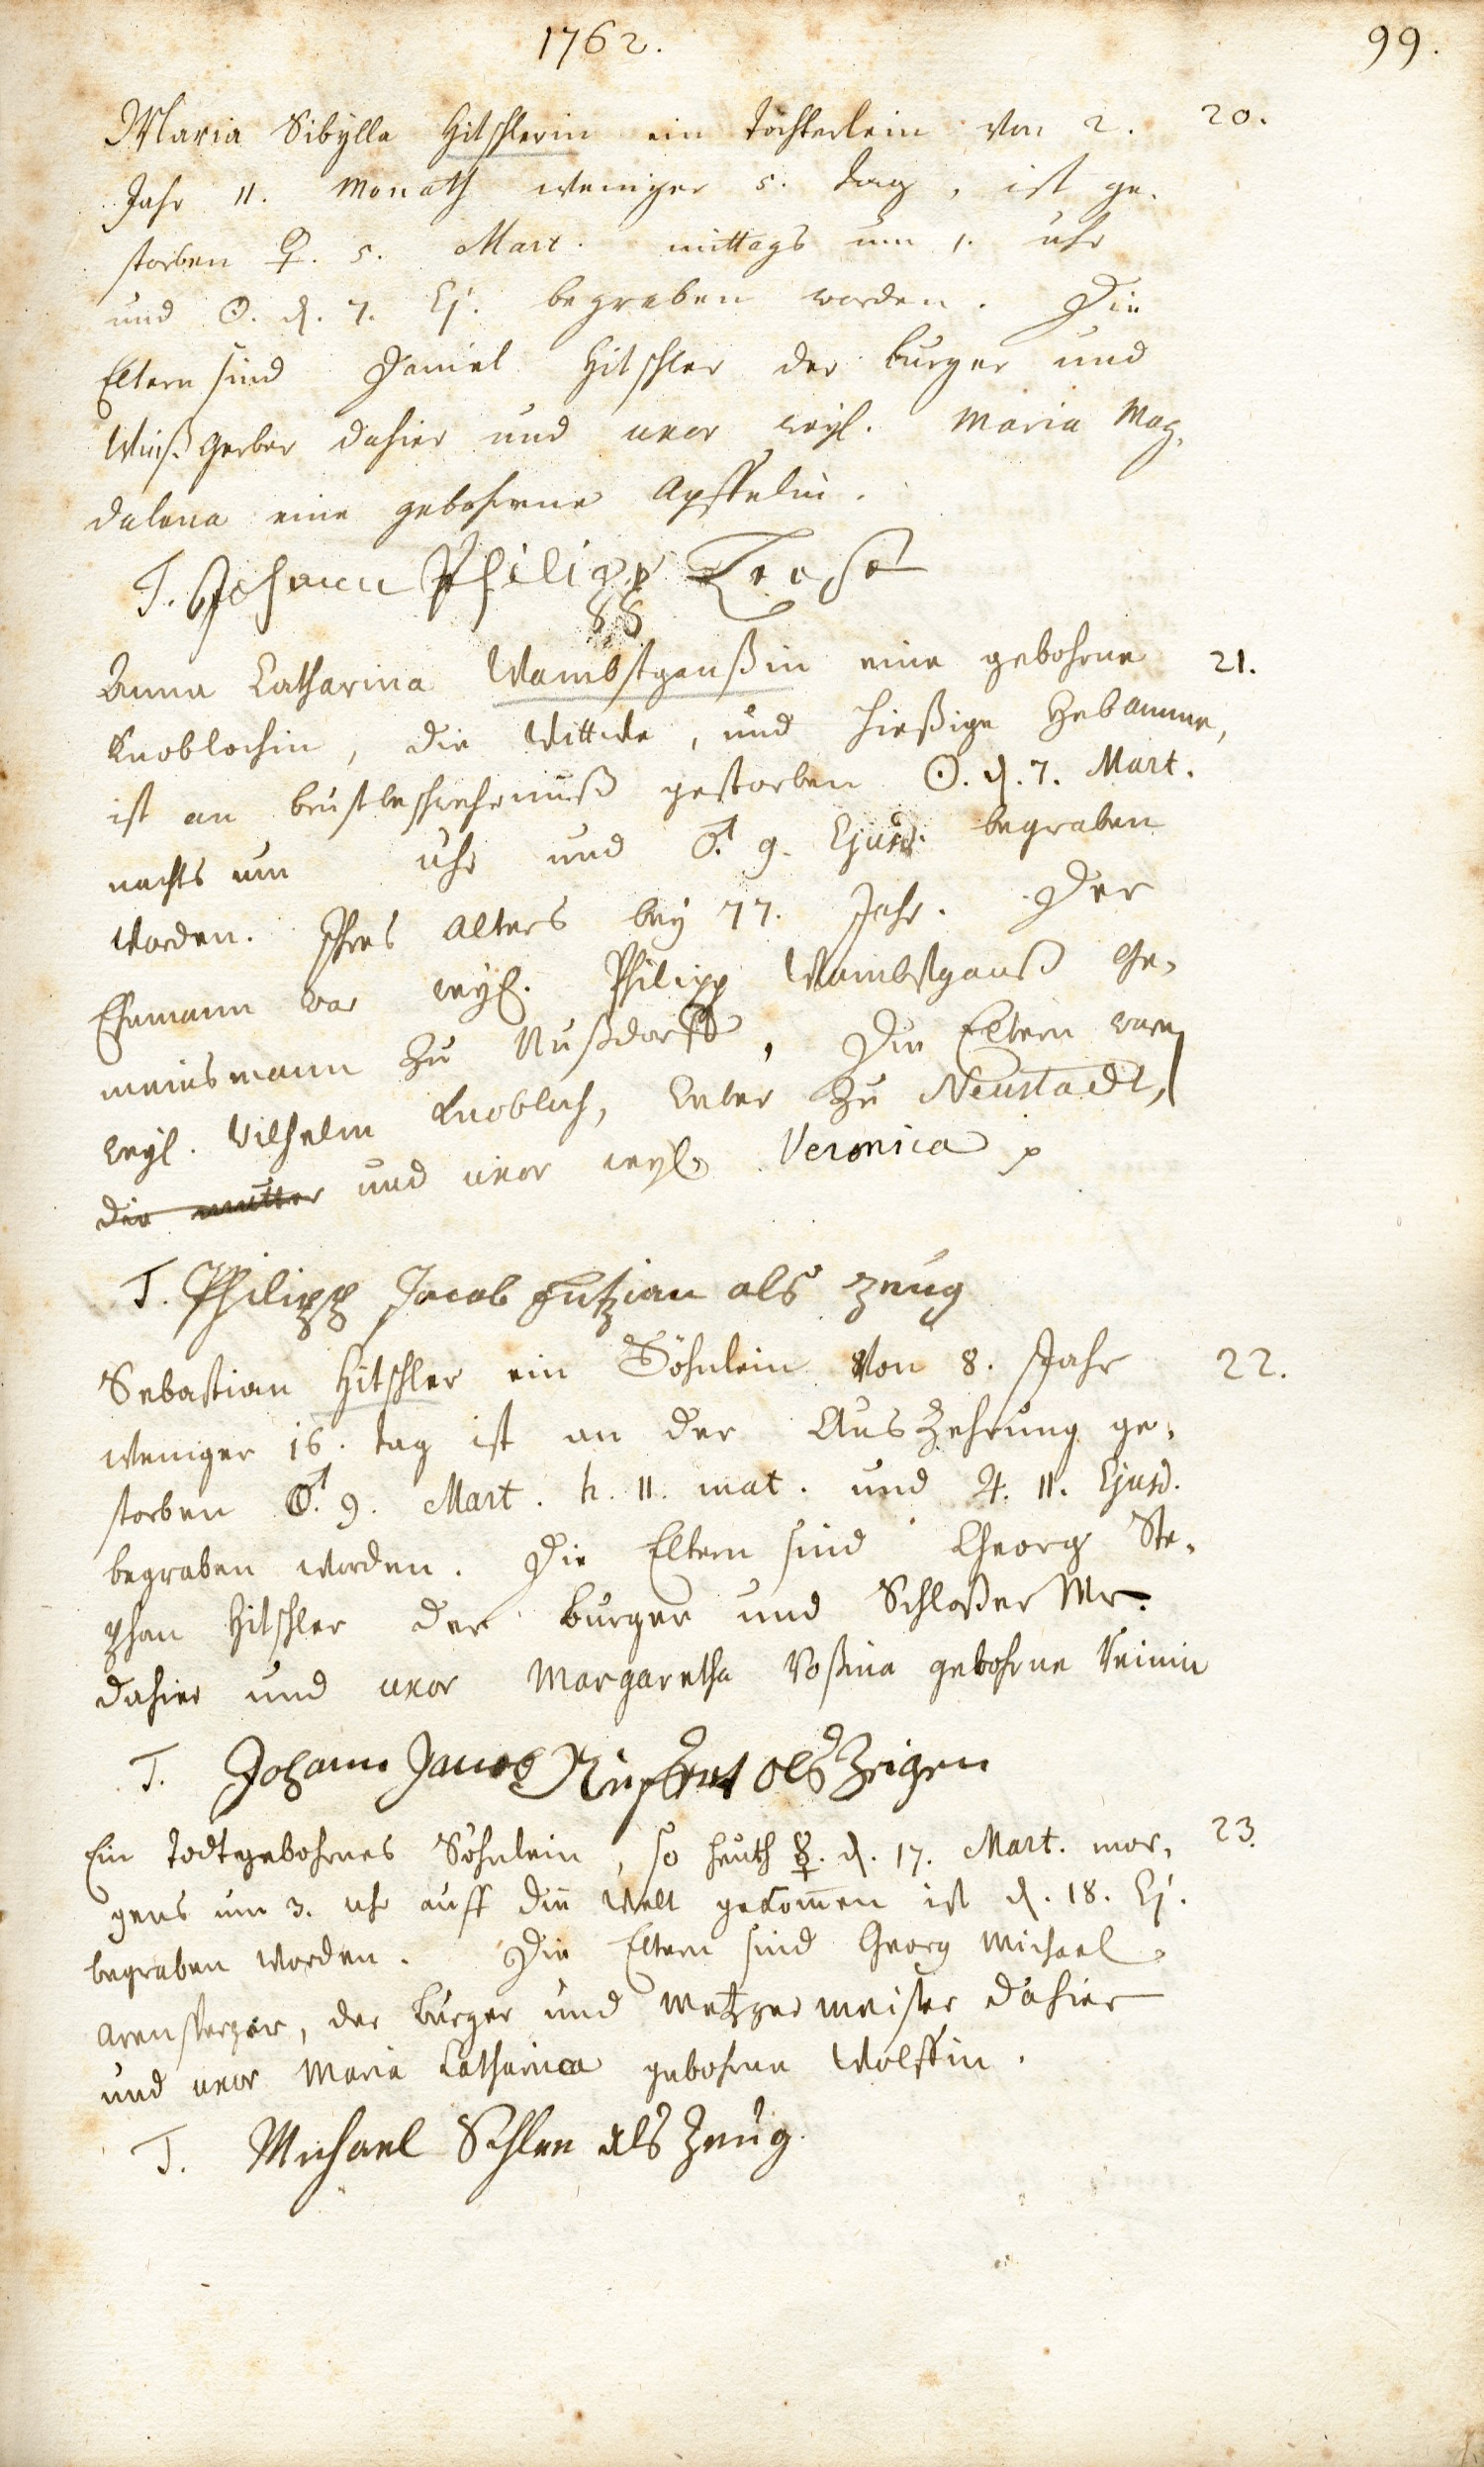 1762.
99.
Maria Sibylla Hitschlerin ein Töchterlein von 2. 20.
Jahr 11. Monath weniger 5. tag, ist ge-
storben ♀. 5. Mart. mittags um 1. uhr
und ☉. d. 7. Ej. begraben worden. Die
Eltern sind Daniel Hitschler der burger und
Weißgerber dahier und uxor weyl. Maria Mag-
dalena eine gebohrne Apffelin.
T. Johann Philipp
Anna Catharina Wambstganßin eine gebohrne 21.
Knoblochin, die Wittwe, und hießige Hebamme,
ist an brustbeschwehrnuß gestorben ☉. d. 7. Mart.
nachts um uhr und ♂. 9. Ejusd. begraben
worden. Ihres Alters bey 77. Jahr. Der
Ehemann war weyl. Philipp Wambstganß Ge-
meinsmann zu Nußdorff, Die Eltern waren
weyl. Wilhelm Knobloch, zu Neustadt,
die mutter und uxor weyl. Veronica
T. Philipp Jacob als zeug
Sebastian Hitschler ein Söhnlein von 8. Jahr 22.
weniger 16. tag ist an der Auszehrung ge-
storben ♂. 9. Mart. h. 11. mat. und ♃. 11. Ejusd.
begraben worden. Die Eltern sind Georg Ste-
phan Hitschler der burger und Schloßer Mr.
dahier und uxor Margaretha Roßina gebohrne
T. Johann Jacob als Zeigen
Ein todtgebohrnes Söhnlein, so heuth ☿. d. 17. Mart. mor- 23.
gens um 3. uhr auff die Welt gekom̅en ist d. 18. Ej.
begraben worden. Die Eltern sind Georg Michael
Arensperger, der burger und Metzger meister dahier
und uxor Maria Catharina gebohrne Wolffin.
T. Michael Schlee als Zeug.